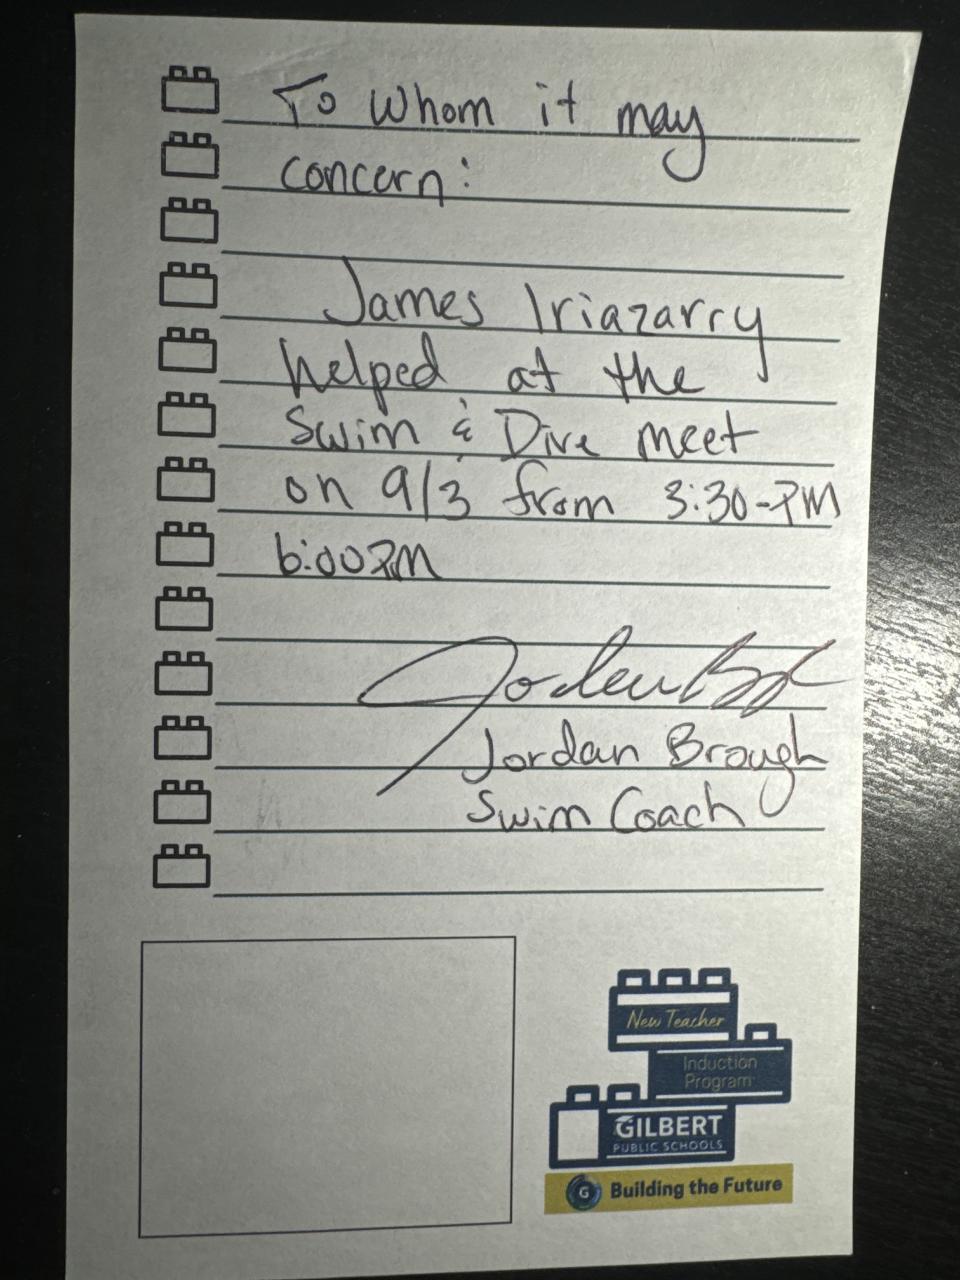 To Whom it may
concern:
James Iriazarry
helped at the
Swim & Dive meet
on 9/3 from 3:30-PM
6:00PM
Jordan Brough
Swim Coach
New Teacher
Induction
Program
GILBERT
PUBLIC SCHOOLS
G Building the Future